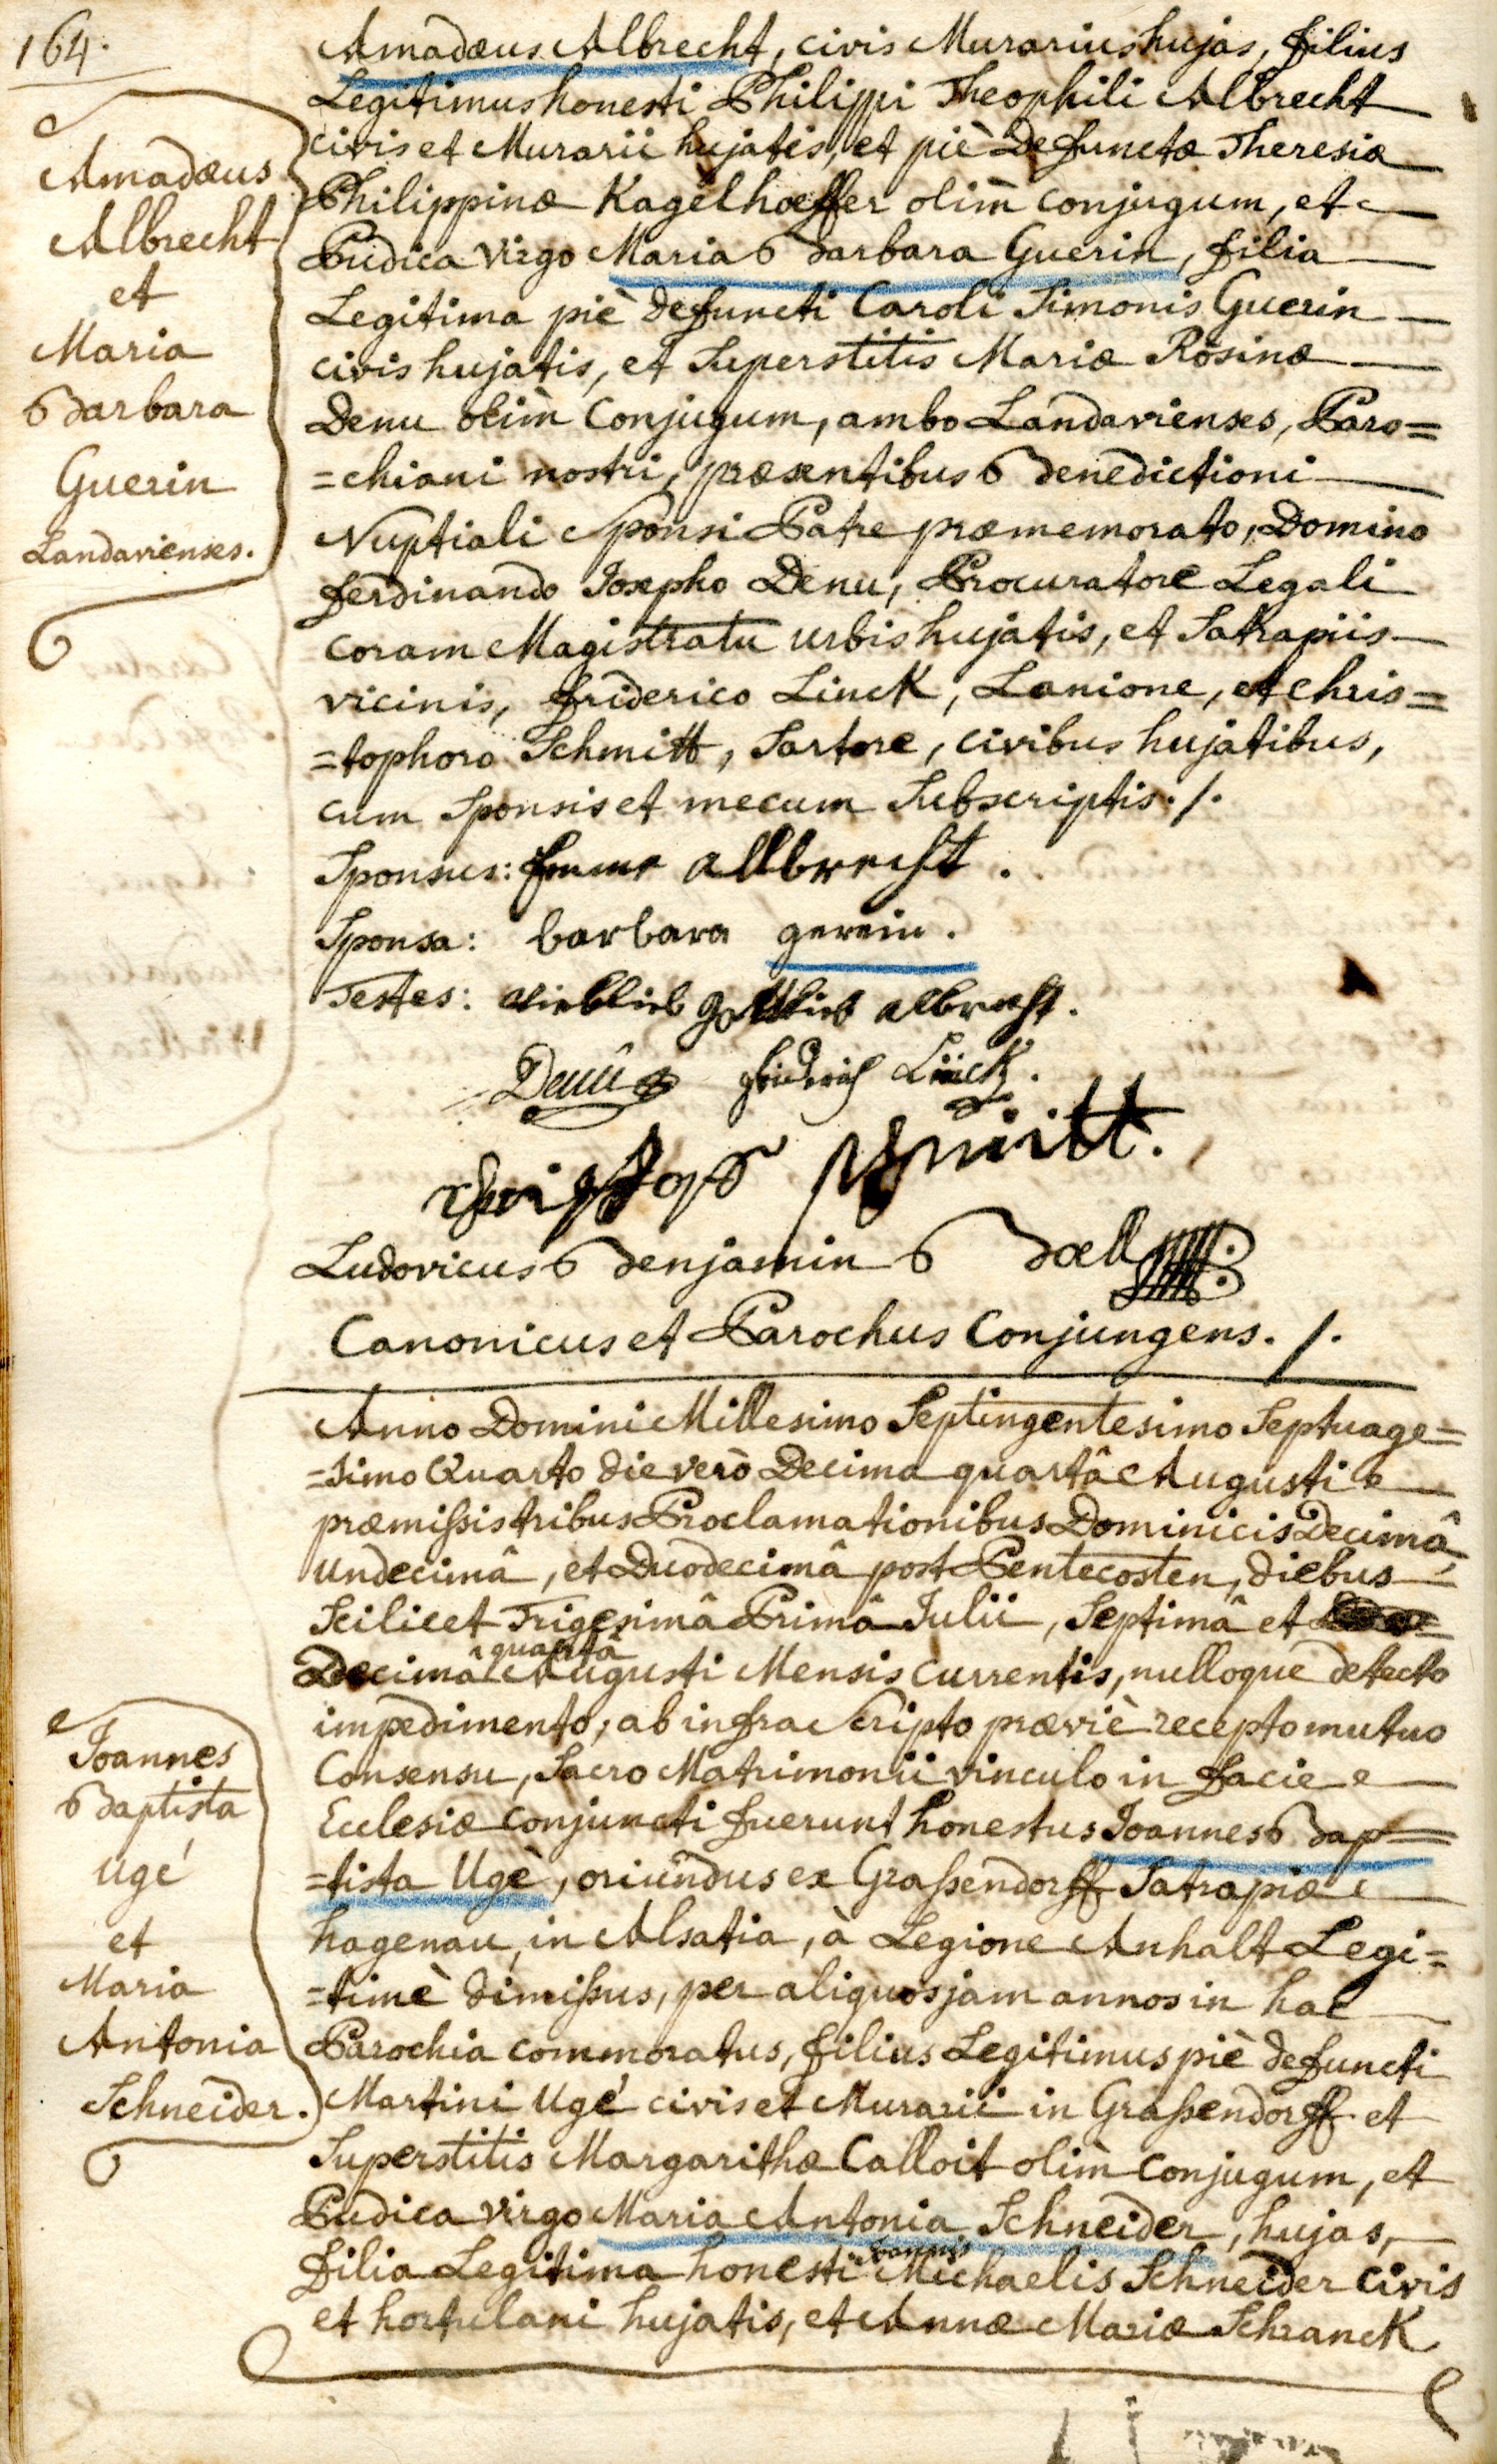 164.
Amadæus
Albrecht
et
Maria
Barbara
Guerin
Landavienses.
Amadæus Albrecht, civis Murarius hujas, filius
Legitimus honesti Philippi Theophili Albrecht
civis et Murarii hujatis, et piè defunctæ Theresiæ
Philippinæ Kagelhoeffer olim conjugum, et
Pudica virgo Maria Barbara Guerin, filia
Legitima piè defuncti Caroli Simonis Guerin
civis hujatis, et Superstitis Mariæ Rosinæ
Denu olim Conjugum, ambo Landavienses, Paro=
=chiani nostri, præsentibus Benedictioni
Nuptiali Sponsi Patre præmemorato, Domino
ferdinando Josepho Denu, Procuratore Legali
coram Magistratu urbis hujatis, et Satrapiis
vicinis, friderico Linck, Lanione, et Chris=
=tophoro Schmitt, Sartore, civibus hujatibus,
cum Sponsis et mecum Subscriptis. /.
Sponsus: albrecht.
Sponsa: barbara gerein.
Testes: gottlieb albrecht.
Denu fridrich Linck.
christoph schmitt.
Ludovicus Benjamin Bæll
Canonicus et Parochus Conjungens. /.
Joannes
Baptista
Ugé
et
Maria
Antonia
Schneider.
Anno Domini Millesimo Septingentesimo Septuage=
=simo Quarto die verò Decima quartâ Augusti
præmissis tribus Proclamationibus Dominicis Decimâ,
undecimâ, et Duodecimâ post Pentecosten, diebus
Scilicet Trigesimâ Primâ Julii, Septimâ et
Decimâ quartâ Augusti Mensis currentis, nulloque detecto
impedimento, ab infra Scripto præviè recepto mutuo
Consensu, Sacro Matrimonii vinculo in facie
Ecclesiæ conjuncti fuerunt honestus Joannes Bap=
=tista Ugè, oriundus ex Grassendorff Satrapiæ
hagenau, in Alsatia, à Legione Anhalt Legi=
=timè dimissus, per aliquos jam annos in hac
Parochia commoratus, filius Legitimus piè defuncti
Martini Ugé civis et Murarii in Grassendorff et
Superstitis Margarithæ Calloit olim conjugum, et
Pudica virgo Maria Antonia Schneider, hujas,
filia Legitima honesti Joannis Michaelis Schneider civis
et hortulani hujatis, et Annæ Mariæ Schranck